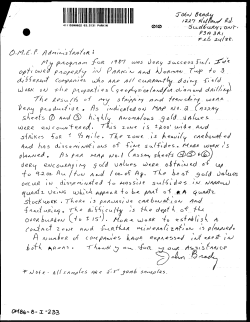 John Brady
1227 Holland Rd
Sudbury, Ont.
P3A 3R1
Feb 24/88.
O.M.E.P. Administrator:
My program for 1987 was very successful. I've
optioned property in Parkin and Norman Twp to 3
different companies who are all currently doing field
work on the properties (geophysical and/or diamond drilling)
The results of my stripping and trenching were
very productive. As indicated on map No. 2 (assay
sheets ① and ⑤) highly anomalous gold values
were encountered. This zone is 200' wide and
strikes for 1 mile. The zone is heavily carbonated
and has disseminations of fine sulfides. More work is
planned. As for map
very encouraging gold values were obtained of up
to 9200 Au/ton and 1oz of Ag. The best gold values
occur in disseminated to massive sulfides in narrow
quartz veins which appear to be part of a quartz
stockwork. There is pervasive carbonation and
fracturing. The difficulty is the depth of the
overburden (to 515'). More work to establish a
contact zone and further mineralization is planned.
A number of companies have expressed interest in
both areas. Thank you for your assistance
John Brady
* Note - all samples are 5# grab samples.
OM86-8-I-233